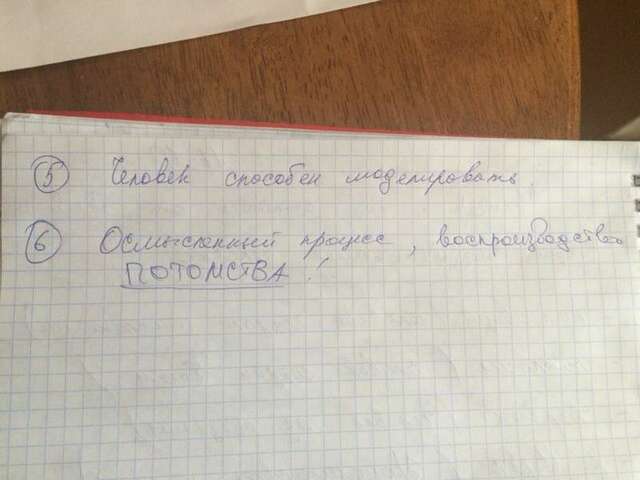 5 Человек способен моделировать.
6 Осмысленный процес, воспроизводство
ПОТОМСТВА!